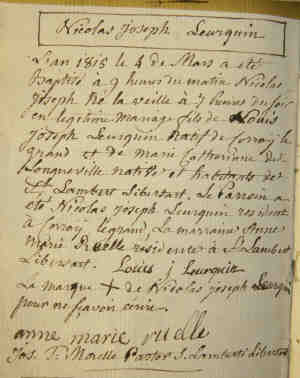 Nicolas Joseph Leurquin
L'an 1815 le 4 de Mars a eté
Baptisé a 9 heures du matin Nicolas
joseph né la veille à 7 heures du soir
en legitime mariage fils de Louis
Joseph Leurquin natif de Corroy le
grand et de Marie Catherinne de
Longueville natifs et habitants de
St Lambert Libersart. Le Parrein a
eté Nicolas Joseph Leurquin resident
à Corroy legrand, La marraine Anne
Marie Ruelle residente à St Lambert
Libersart. Louis j Leurquin
La marque + de Nicolas joseph Leurquin
pour ne sçavoir écrire.
anne marie ruelle
Jos. T. Noelle Pastor S. Lamberti Libersart